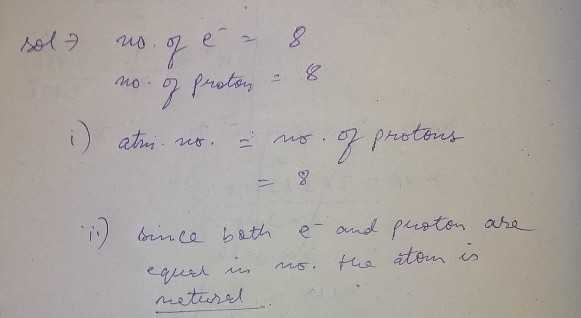 sol → no. of e⁻ = 8
no. of proton = 8
i) atm. no. = no. of protons
= 8
ii) since both e⁻ and proton are
equal in no. the atom is
netural.